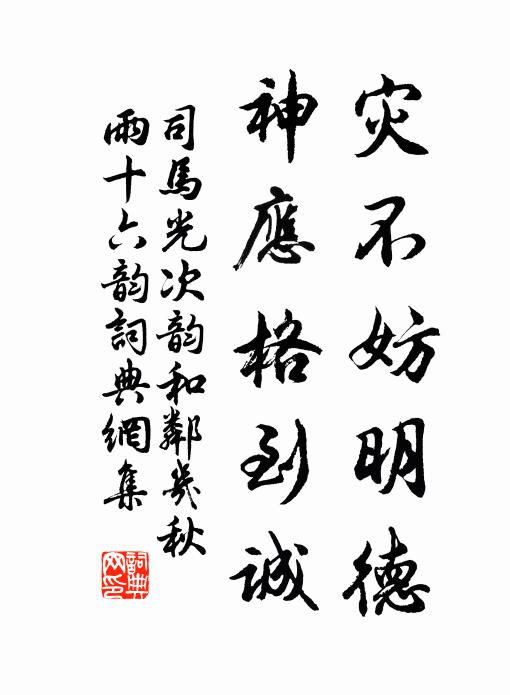 灾不妨明德
神應格到誠
司馬光次韵和鄰幾秋
雨十六韵詞典網集
詞典
网印